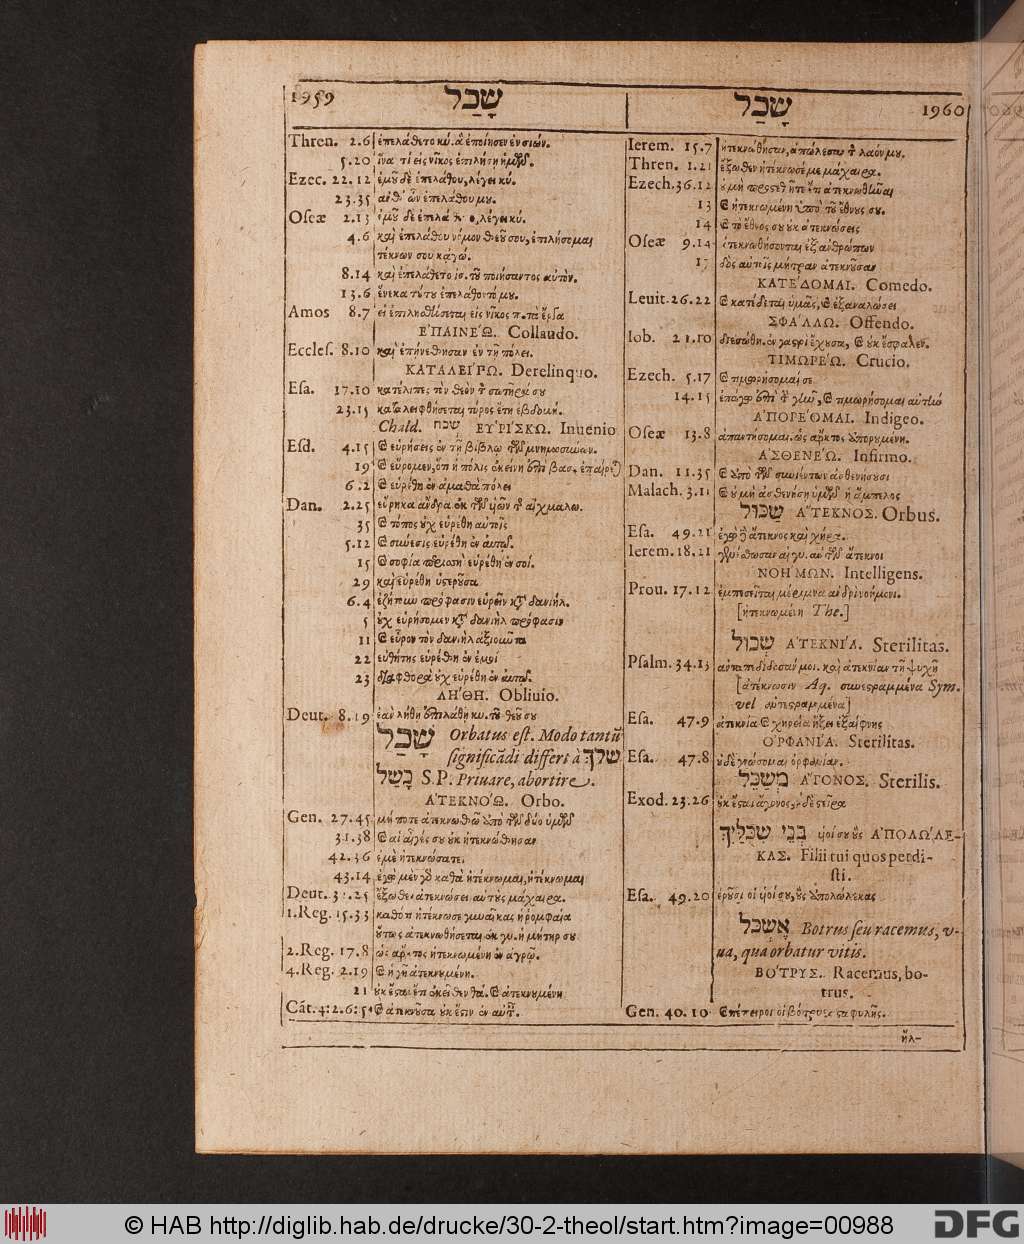 1959 שָׁכַל
Thren. 2.6 ἐπελάθετο κύ. ἃ ἐποίησεν ἐν σιών.
5.20 ἵνα τί εἰς νῖκος ἐπιλήσῃ ἡμῶν.
Ezec. 22.12 ἐμοῦ δὲ ἐπελάθου, λέγει κύ.
23.35 ἀνθ' ὧν ἐπελάθου μου.
Oseæ 2.13 ἐμοῦ δὲ ἐπελάθετο, λέγει κύ.
4.6 καὶ ἐπελάθου νόμον θεοῦ σου, ἐπιλήσομαι
τέκνων σου κἀγώ.
8.14 καὶ ἐπελάθετο ἰσ. τοῦ ποιήσαντος αὐτόν.
13.6 ἕνεκα τούτου ἐπελάθοντό μου.
Amos 8.7 εἰ ἐπιλησθήσεται εἰς νῖκος π. τὰ ἔργα
ἘΠΑΙΝΕΏ. Collaudo.
Eccles. 8.10 καὶ ἐπῃνέθησαν ἐν τῇ πόλει.
ΚΑΤΑΛΕΙΠΩ. Derelinquo.
Esa. 17.10 κατέλιπες τὸν θεὸν τ σωτῆρά σου
23.15 καταλειφθήσεται τύρος ἔτη ἑβδομή.
Chald. שכח ΕΥΡΙΣΚΩ. Inuenio
Esd. 4.15 καὶ εὑρήσεις ἐν τῇ βίβλῳ τῶν μνημοσύνων.
19 καὶ εὕρομεν, ὅτι ἡ πόλις ἐκείνη ἐπὶ βασ. ἐπαίρε
6.2 καὶ εὑρέθη ἐν ἀμαθὰ πόλει
Dan. 2.25 εὕρηκα ἄνδρα ἐκ τῶν υἱῶν τ αἰχμαλω.
35 καὶ τόπος οὐχ εὑρέθη αὐτοῖς
5.12 καὶ σύνεσις εὑρέθη ἐν αὐτῷ.
15 καὶ σοφία περισσὴ εὑρέθη ἐν σοί.
29 καὶ εὑρέθη ὑστεροῦσα
6.4 ἐζήτουν πρόφασιν εὑρεῖν κτ δανιήλ.
5 οὐχ εὑρήσομεν κτ δανιὴλ πρόφασιν
11 καὶ εὗρον τὸν δανιὴλ ἀξιοῦντα
22 εὐθύτης εὑρέθη ἐν ἐμοί
23 διαφθορὰ οὐχ εὑρέθη ἐν αὐτῷ.
ΛΗΘΗ. Obliuio.
Deut. 8.19 ἐὰν λήθῃ ἐπιλάθῃ κυ. τοῦ θεοῦ σου
שָׁכַל Orbatus est. Modo tantũ
significãdi differt à שלך
כָשַל S.P. Priuare, abortire.
ἈΤΕΚΝΟΏ. Orbo.
Gen. 27.45 μή ποτε ἀτεκνωθῶ ὑπὸ τῶν δύο ὑμῶν
31.38 καὶ αἱ αἶγές σου οὐκ ἠτεκνώθησαν
42.36 ἐμὲ ἠτεκνώσατε.
43.14 ἐγὼ μὲν γὸ καθὰ ἠτέκνωμαι, ἠτέκνωμαι
Deut. 32.25 ἔξωθεν ἀτεκνώσει αὐτοὺς μάχαιρα.
1. Reg. 15.33 καθότι ἠτέκνωσε γυναῖκας ἡ ῥομφαία
οὕτως ἀτεκνωθήσεται ἐκ γυ. ἡ μήτηρ σου
2. Reg. 17.8 ὡς ἄρκτος ἠτεκνωμένη ἐν ἀγρῷ.
4. Reg. 2.19 καὶ ἡ γῆ ἀτεκνουμένη.
21 οὐκ ἔσται ἔτι ἐκεῖθεν θά. καὶ ἀτεκνουμένη
Cãt. 4:2.6:5. καὶ ἀτεκνοῦσα οὐκ ἔστιν ἐν αὐτ.
שָׁכַל 1960
Ierem. 15.7 ἠτεκνώθησαν, ἀπώλεσαν τ λαόν μου.
Thren. 1.21 ἔξωθεν ἠτέκνωσέ με μάχαιρα.
Ezech. 36.12 οὐ μὴ προστεθῆτε ἔτι ἀτεκνωθῆναι
13 καὶ ἠτεκνωμένη ὑπὸ τοῦ ἔθνους σου.
14 καὶ τὸ ἔθνος σου οὐκ ἀτεκνώσεις
Oseæ 9.14 ἀτεκνωθήσονται ἐξ ἀνθρώπων
17 δὸς αὐτοῖς μήτραν ἀτεκνοῦσαν
ΚΑΤΕΔΟΜΑΙ. Comedo.
Leuit. 26.22 καὶ κατέδεται ὑμᾶς, καὶ ἐξαναλώσει
ΣΦΑΛΛΩ. Offendo.
Iob. 21.10 διεσώθη. ἐν γαστρὶ ἔχουσα, καὶ οὐκ ἔσφαλεν.
ΤΙΜΩΡΕΏ. Crucio.
Ezech. 5.17 καὶ τιμωρήσομαί σε
14.15 ἐπάγω ἐπὶ τ γῆν, καὶ τιμωρήσομαι αὐτὴν
ἈΠΟΡΕΟΜΑΙ. Indigeo.
Oseæ 13.8 ἀπαντήσομαι. ὡς ἄρκτος ἀπορουμένη.
ἈΣΘΕΝΕΏ. Infirmo.
Dan. 11.35 καὶ ἀπὸ τῶν συνιέντων ἀσθενήσουσι
Malach. 3.11 καὶ οὐ μὴ ἀσθενήσῃ ὑμῶν ἡ ἄμπελος
שַׁכּוּל ἌΤΕΚΝΟΣ. Orbus.
Esa. 49.21 ἐγὼ δὲ ἄτεκνος καὶ χήρα.
Ierem. 18.21 γενέσθωσαν αἱ γυ. αὐτῶν ἄτεκνοι
ΝΟΗΜΩΝ. Intelligens.
Prou. 17.12 ἐμπεσεῖται μέριμνα ἀνδρὶ νοήμονι.
[ἠτεκνωμένη The.]
שְׁכוֹל ἈΤΕΚΝΊΑ. Sterilitas.
Psalm. 34.13 ἀνταπεδίδοσάν μοι. καὶ ἀτεκνίαν τῇ ψυχῇ
[ἀτέκνωσιν Aq. συνεσραμμένα Sym.
vel
Esa. 47.9 ἀτεκνία καὶ χηρεία ἥξει ἐξαίφνης
ὈΡΦΑΝΊΑ. Sterilitas.
Esa. 47.8 οὐδὲ γνώσομαι ὀρφανίαν.
מְשַׁכֵּל ἌΓΟΝΟΣ. Sterilis.
Exod. 23.26 οὐκ ἔσται ἄγονος, οὐδὲ στεῖρα
בְּנֵי שִׁכֻּלַיִךְ υἱοί σου οὓς ἈΠΟΛΏΛΕ-
ΚΑΣ. Filii tui quos perdi-
sti.
Esa. 49.20 ἐροῦσι οἱ υἱοί σου, οὓς ἀπολώλεκας
אֶשְׁכֹּל Botrus seu racemus, v-
ua, qua orbatur vitis.
ΒΟΤΡΥΣ. Racemus, bo-
trus.
Gen. 40.10 καὶ πέπειροι οἱ βότρυες σταφυλῆς.
ἤλ-
© HAB http://diglib.hab.de/drucke/30-2-theol/start.htm?image=00988
DFG